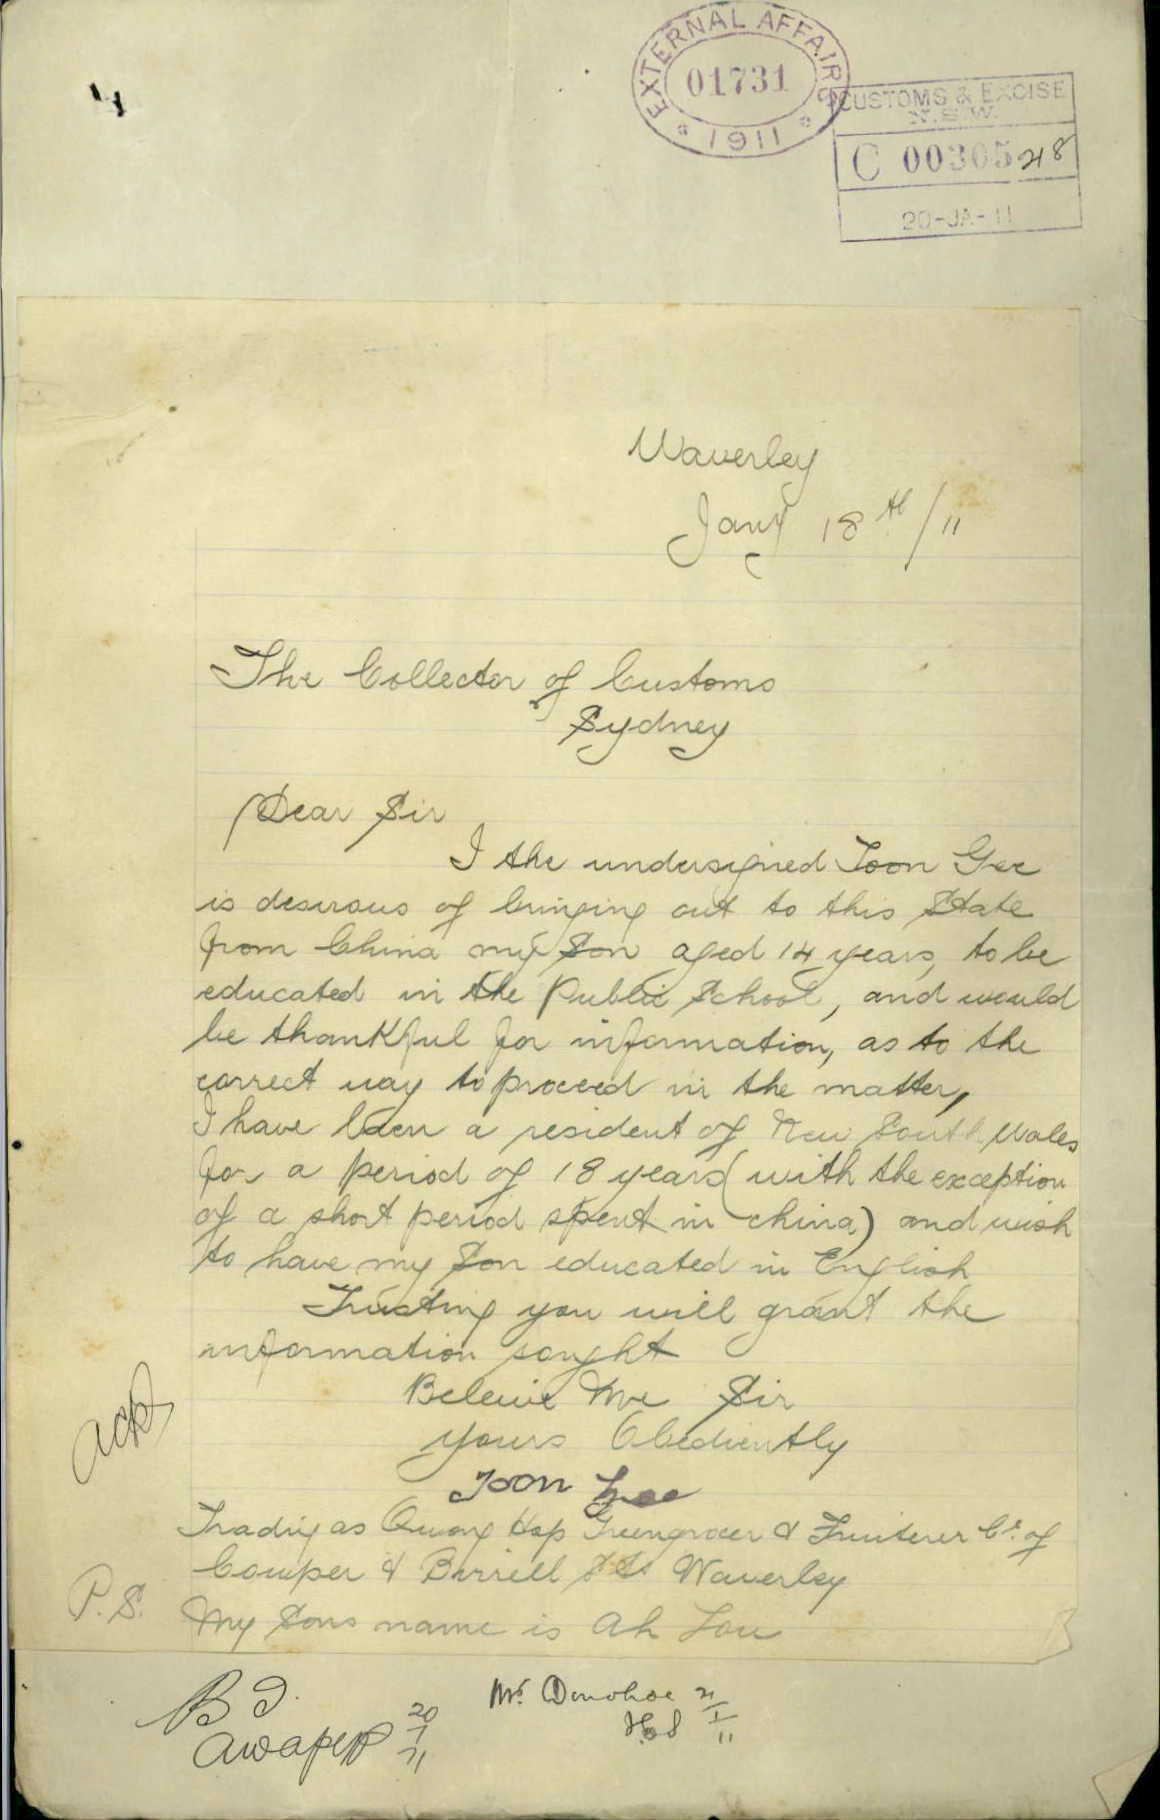 EXTERNAL AFFAIRS
01731
1911
CUSTOMS & EXCISE
N.S.W.
C 00305
20-JA-11
Waverley
Jany 18th/11
The Collector of Customs
Sydney
Dear Sir
I the undersigned Toon Gee
is desirous of bringing out to this State
from China my Son aged 14 years, to be
educated in the Public School, and would
be thankful for information, as to the
correct way to proceed in the matter,
I have been a resident of New South Wales
for a period of 18 years (with the exception
of a short period spent in china) and wish
to have my Son educated in English
Trusting you will grant the
information sought
Beleive Me Sir
Yours Obediently
Toon Gee
Ack
Trading as Quong Hap Greengrocer & Fruiterer Cr. of
Cowper & Birrell St. Waverley
P.S. My Sons name is Ah Lou
20/1/11
Mr. Donohoe 21/1/11